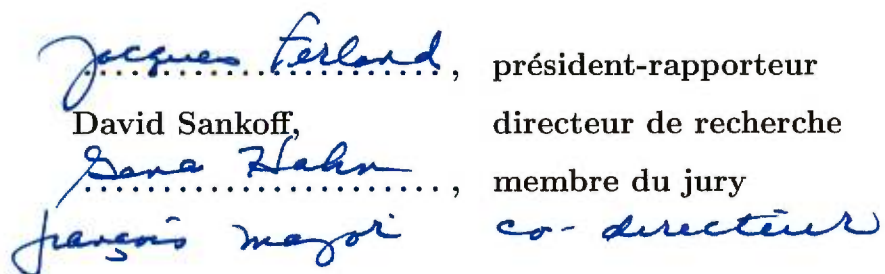 Jacques Ferland, président-rapporteur
David Sankoff, directeur de recherche
Gena Hahn, membre du jury
françois major co-directeur